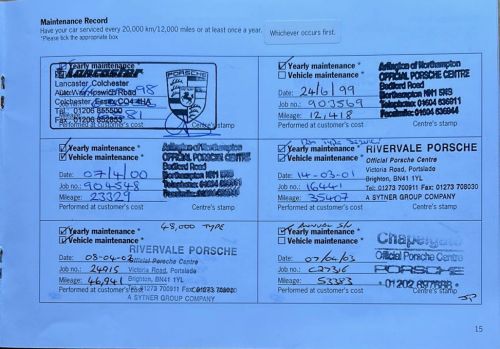 Maintenance Record
Have your car serviced every 20,000 km/12,000 miles or at least once a year. Whichever occurs first.
*Please tick the appropriate box
Yearly maintenance *
Lancaster
Lancaster Colchester
Auto Way, Ipswich Road
Colchester, Essex CO4 4HA
Tel: 01206 855500
Performed at customer's cost
Centre's stamp
PORSCHE
Yearly maintenance *
Vehicle maintenance *
Date: 24/6/99
Job no.: 903569
Mileage: 12,418
Performed at customer's cost
Arlington of Northampton
OFFICIAL PORSCHE CENTRE
Bedford Road
Northampton NN1 5NS
Telephone: 01604 636911
Yearly maintenance *
Vehicle maintenance *
Date: 07/4/00
Job no.: 904548
Mileage: 23329
Performed at customer's cost
Arlington of Northampton
OFFICIAL PORSCHE CENTRE
Bedford Road
Northampton NN1 5NS
Centre's stamp
Yearly maintenance *
Vehicle maintenance *
Date: 14-03-01
Job no.: 16441
Mileage: 35407
Performed at customer's cost
RIVERVALE PORSCHE
Official Porsche Centre
Victoria Road, Portslade
Brighton, BN41 1YL
Tel: 01273 700911 Fax: 01273 708030
A SYTNER GROUP COMPANY
Centre's stamp
48,000 TYPE
Yearly maintenance *
Vehicle maintenance *
Date: 08-04-02
Job no.: 24915
Mileage: 46,941
Performed at customer's cost
RIVERVALE PORSCHE
Official Porsche Centre
Victoria Road, Portslade
Brighton, BN41 1YL
Tel: 01273 700911 Fax: 01273 708030
A SYTNER GROUP COMPANY
Yearly maintenance *
Vehicle maintenance *
Date: 07/04/03
Job no.: C27316
Mileage: 53383
Performed at customer's cost
Official Porsche Centre
PORSCHE
Centre's stamp
15